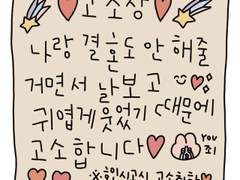 고소장
나랑 결혼도 안 해줄
거면서 날 보고
귀엽게 웃었기 때문에
고소합니다 you
죄